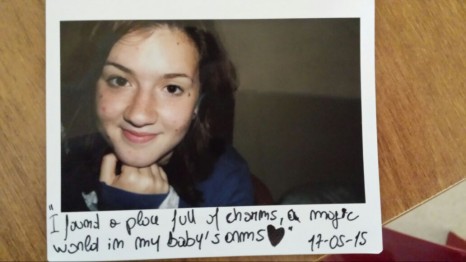 "I found a place full of charms, a magic
world in my baby's arms♥" 17-05-15